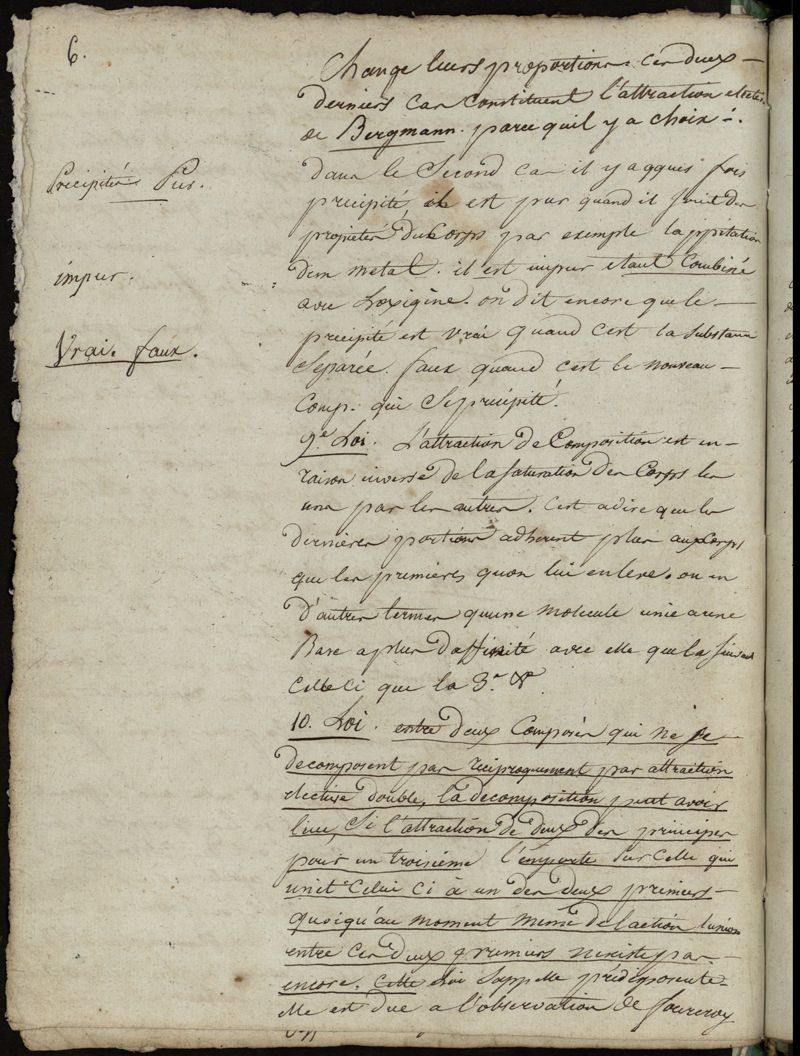 6.
Change leurs proportions. ces deux
derniers cas constituent l'attraction elective
de Bergmann. parce quil y a choix.
Précipités Purs.
dans le Second cas il y a qques fois
precipité, il est pur quand il jouit des
propietés du Corps par exemple la ppitation
dun metal. il est impur etant Combiné
impur.
avec Loxigène. on dit encore que le
precipité est vrai quand cest la substance
Vrai. faux.
Separée. faux quand cest le nouveau
Comp. qui Seprécipité.
9.e Loi. L'attraction de Composition est en
raison inverse de la saturation des Corps les
uns par les autres. cest adire que les
dernieres portions adherent plus aux Corps
que les premières quon lui enleve. ou en
d'autres termes quune molecule unie a une
Base a plus d'affinité avec elle que la suivante
Celle ci que la 3.e &
10. Loi. entre deux Composés qui ne se
decomposent pas réciproquement par attraction
elective double, la decomposition peut avoir
lieu, Si l'attraction de deux des principes
pour un troisième l'emporte sur celle qui
unit Celui ci à un des deux premiers
quoiqu'au moment même de l'action l'union
entre ces deux premiers nexiste pas
encore. Cette Loi Sappelle prédisposante
elle est due a l'observation de fourcroy